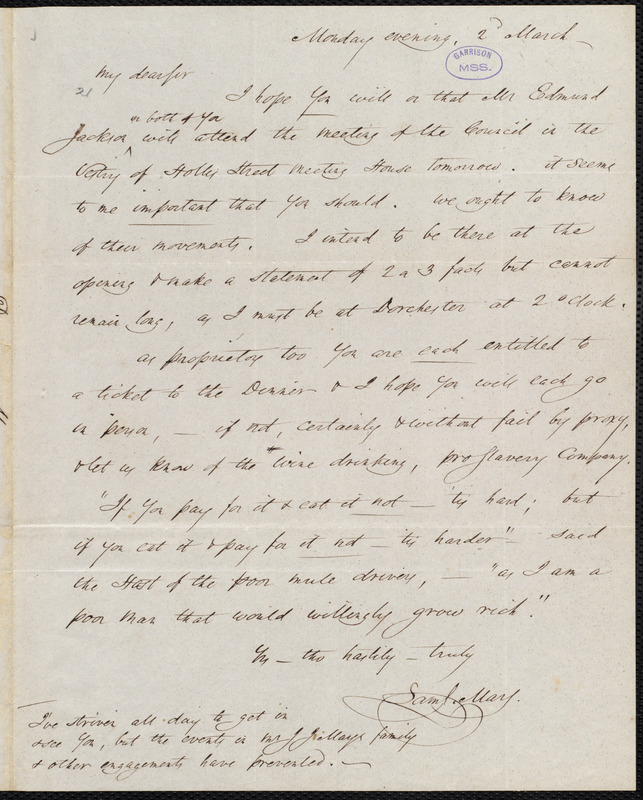 Monday evening, 2d March
GARRISON
MSS.
My dear sir
21
I hope You will or that Mr Edmund
or both of You
Jackson will attend the meeting of the Council in the
Vestry of Hollis Street Meeting House tomorrow. it seems
to me important that You should. we ought to know
of their movements. I intend to be there at the
opening & make a statement of 2 or 3 facts but cannot
remain long, as I must be at Dorchester at 2 oclock.
as proprietors too You are each entitled to
a ticket to the Dinner & I hope You will each go
in person, — if not, certainly & without fail by proxy,
& let us know of the wine drinking, pro slavery Company.
"If You pay for it & eat it not — 'tis hard; but
if you eat it & pay for it not — 'tis harder" — said
the Host of the poor mule drivers, — "as I am a
poor man that would willingly grow rich".
Yrs — tho hastily — truly
Sam J. May.
I've striven all day to get in
& see You, but the events in Mr J J May's family
& other engagements have prevented. —